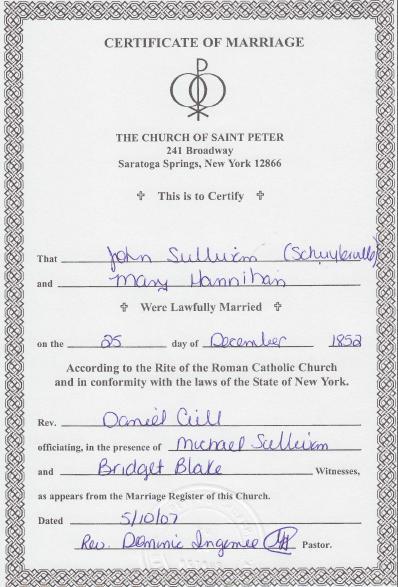 CERTIFICATE OF MARRIAGE
THE CHURCH OF SAINT PETER
241 Broadway
Saratoga Springs, New York 12866
This is to Certify
That John Sullivan (Schuylerville)
and Mary Hannihan
Were Lawfully Married
on the 25 day of December 1852
According to the Rite of the Roman Catholic Church
and in conformity with the laws of the State of New York.
Rev. Daniel Cull
officiating, in the presence of Michael Sullivan
and Bridget Blake Witnesses,
as appears from the Marriage Register of this Church.
Dated 5/10/07
Rev. Dominic Ingemie Pastor.